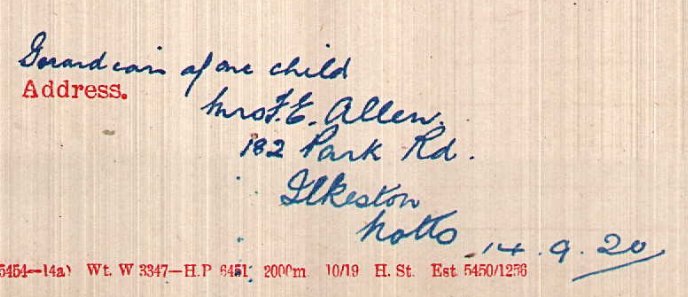 Guardian of one child
Address.
Mrs F. E. Allen.
182 Park Rd.
Ilkeston
Notts 14.9.20
5454—14a) Wt. W 3347—H.P 6451 2000m 10/19 H. St. Est 5450/1256